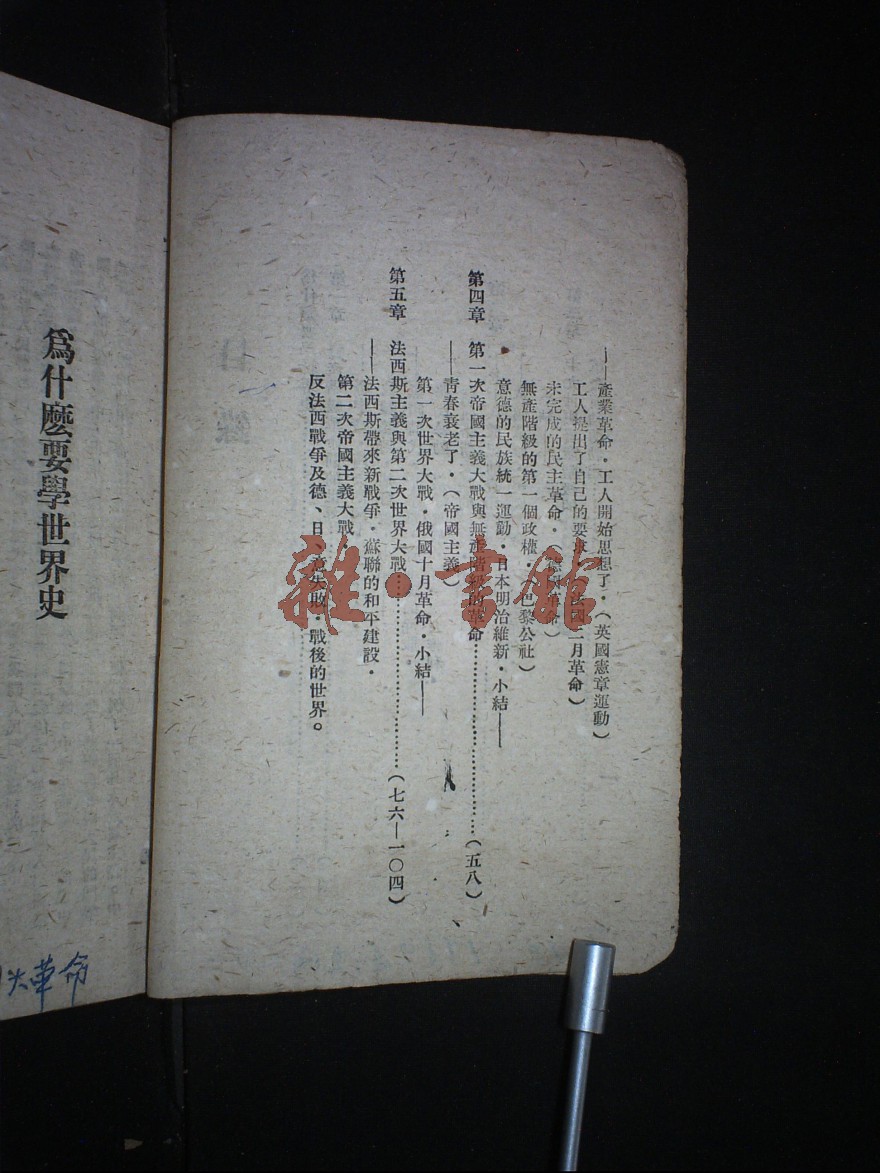 ——產業革命·工人開始思想了·(英國憲章運動)
工人提出了自己的要求 法國二月革命)
未完成的民主革命· 德國革命)
無產階級的第一個政權·(巴黎公社)
意德的民族統一運動·日本明治維新·小結——
第四章 第一次帝國主義大戰與無產階級的革命……(五八)
——青春衰老了·(帝國主義)
第一次世界大戰·俄國十月革命·小結——
第五章 法西斯主義與第二次世界大戰……(七六—一〇四)
——法西斯帶來新戰爭·蘇聯的和平建設·
第二次帝國主義大戰·
反法西戰爭及德、日、意失敗·戰後的世界。
為什麽要學世界史
大革命
雜·書館